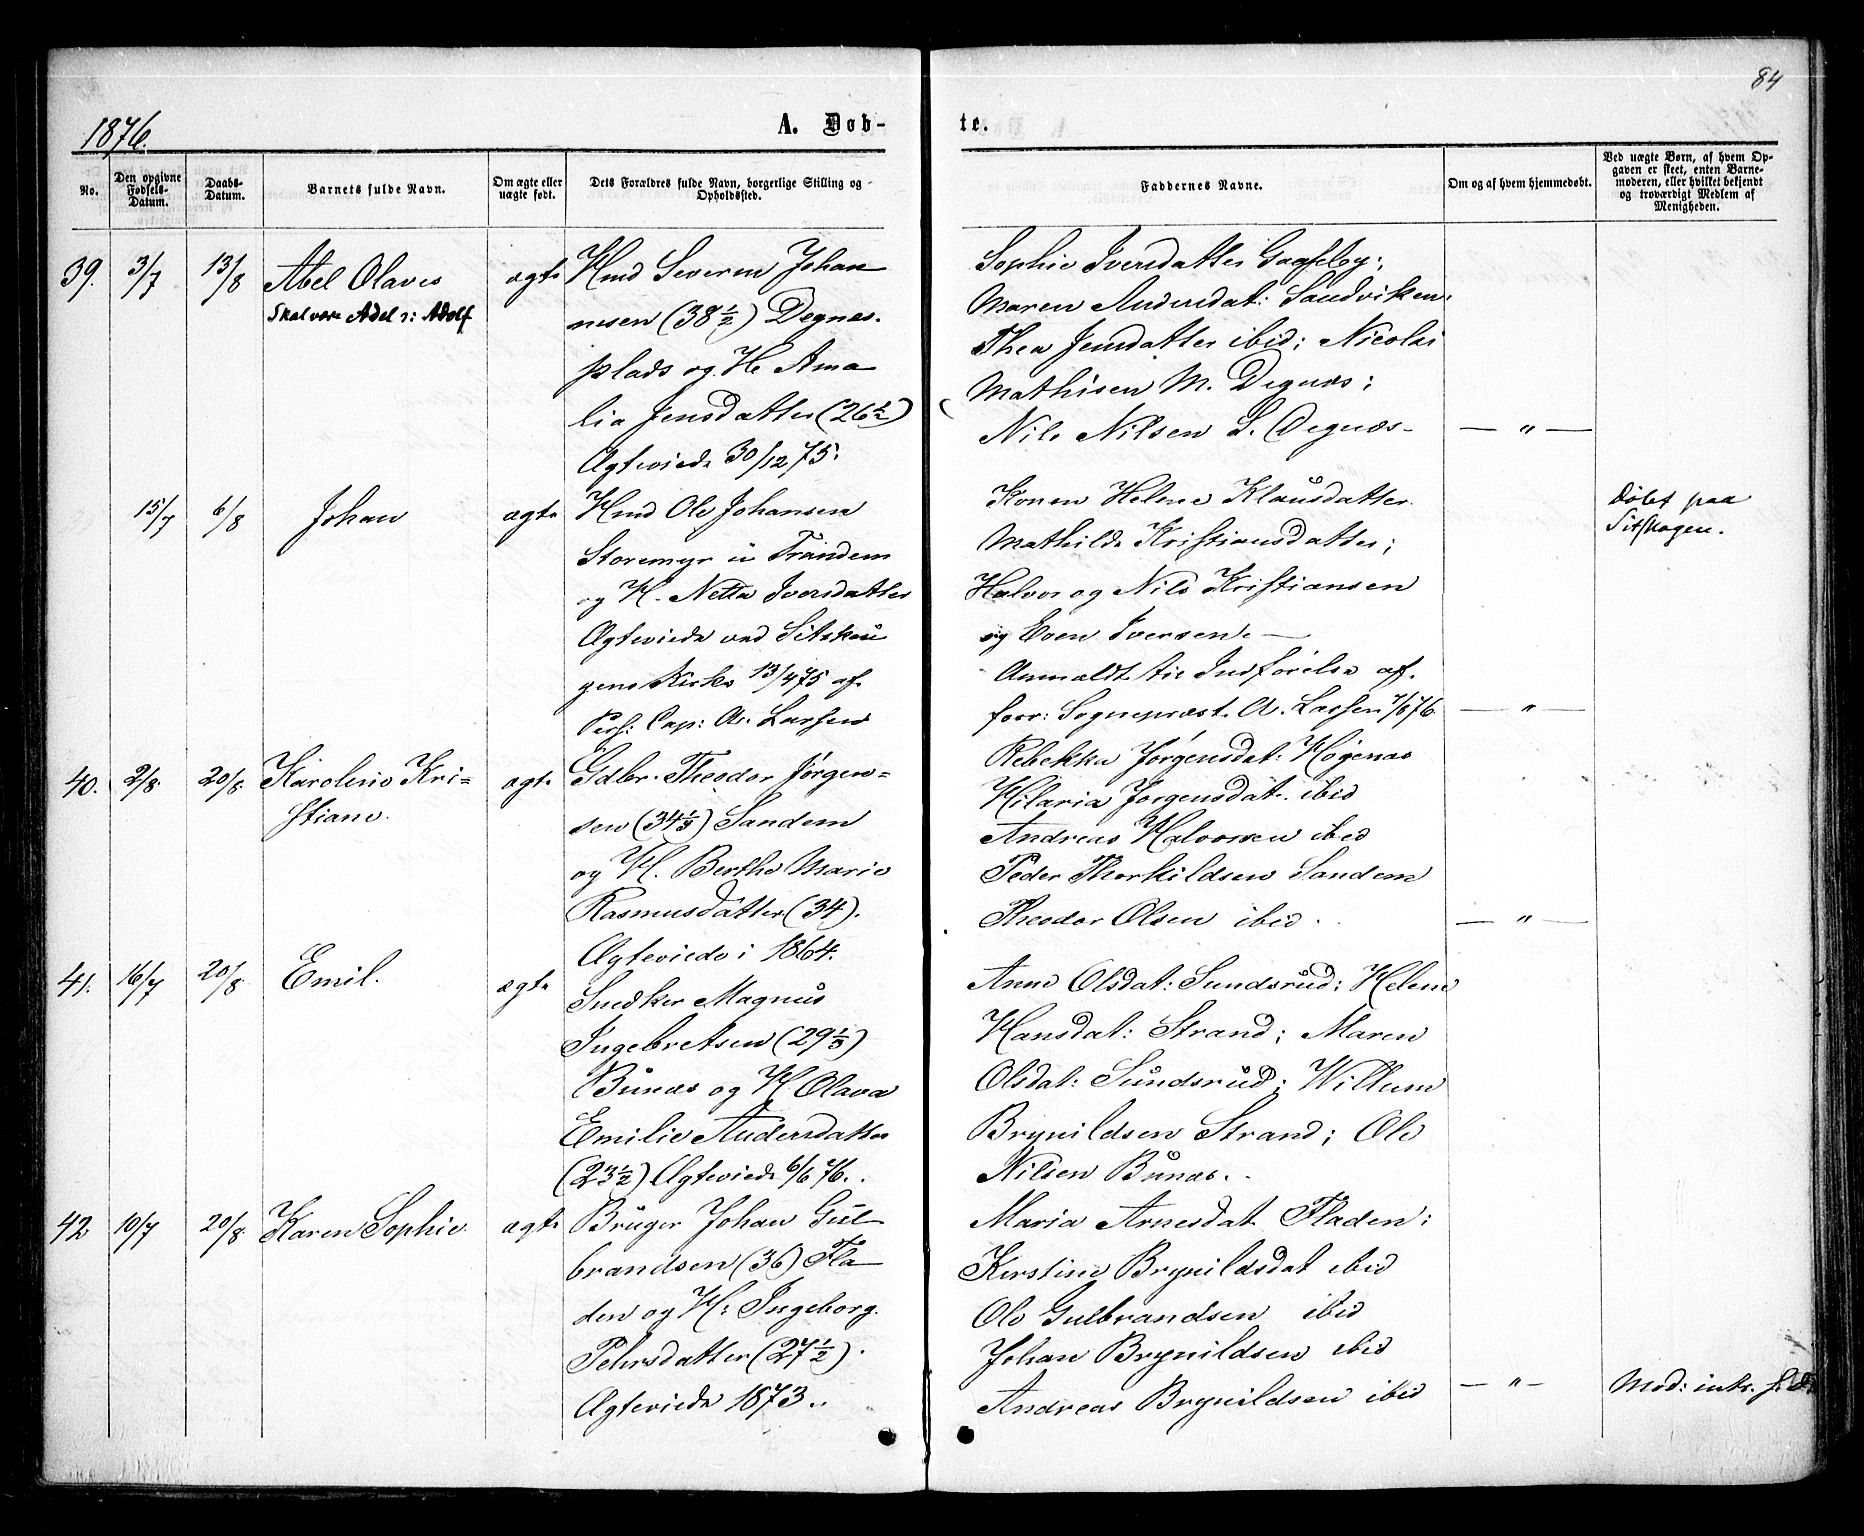 84
1876.
A. Døb-
te.
No.
Den opgivne Fødsels-Datum.
Daabs-Datum.
Barnets fulde Navn.
Om ægte eller uægte født.
Dets Forældres fulde Navn, borgerlige Stilling og Opholdssted.
Faddernes Navne.
Om og af hvem hjemmedøbt.
Ved uægte Børn, af hvem Op-
gaven er skeet, enten Barne-
moderen, eller hvilket bekjendt
og troværdigt Medlem af
Menigheden.
39. 3/7 13/8 Abel Olaves ægte
Skal være Adel ɔ: Adolf
Hmd Severin Johan
nesen (38 1/2) Degnes.
plads og H. Ama
lia Jensdatter (26 1/2)
Ægteviede 30/12 75.
Sophie Iversdatter
Maren Andersdat: Sandviken.
Thea Jensdatter ibid; Nicolai
Mathisen M. Degnæs;
Nils Nilsen S. Degnæs
— " —
15/7 6/8 Johan ægte
Hmd Ole Johansen
Storemyr i Trandem
og H. Netta Iversdatter
Ægteviede ved Sitskou
gens Kirke 13/4 75 af
Pers: Cap: A. Larsen
Konen Helene Klausdatter
Mathilde Kristiansdatter;
Halvor og Nils Kristiansen
og Even Iversen. —
Anmeldt til Indførelse af
forr: Sognepræst A. Lassen 7/8 76.
— " —
Døbt paa
Sitskogen.
40. 2/8. 20/8. Karoline Kri-
stiane. ægte
Gdbr. Theodor Jørgen-
sen (34 1/3) Sandem
og H. Berthe Marie
Rasmusdatter (34).
Ægteviede i 1864.
Rebekka Jørgensdat: Høgenæs
Hilaria Jørgensdat. ibid
Andreas Halvorsen ibid
Peder Thorkildsen Sandem
Theodor Olsen ibid.
— " —
41. 16/7 20/8. Emil. ægte
Snedker Magnus
Ingebretsen (29 1/3)
Bunæs og H. Olava
Emilie Andersdatter
(23 1/2) Ægteviede 6/6 76.
Anne Olsdat: Sundsrud; Helene
Hansdat: Strand; Maren
Olsdat: Sundsrud; Willum
Brynildsen Strand; Ole
Nilsen Bunæs.
42 10/7 20/8. Karen Sophie. ægte
Bruger Johan Gul
brandsen (36) Fla
den og H: Ingeborg
Pehrsdatter (27 1/2).
Ægteviede 1873.
Maria Arnesdat Fladen;
Kirstine Brynildsdat ibid
Ole Gulbrandsen ibid
Johan Brynildsen ibid
Andreas Brynildsen ibid
— " —
Mod: intr.